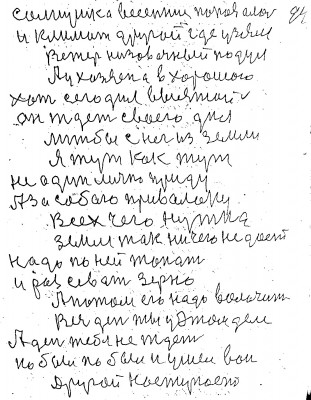 солнышка весенния порой алой 94
и климат другой где узяли
Ветер низовачный подул
А у хозяена в хорошою
хот сегодня выезжай
он ждет своего дня
лиш бы снег из земли
А тут как тут
не один лично приду
А за собою приволоку
Всех чего нужна
земля так ничего не дает
надо по ней топат
и рассеват зерно
А потом его надо волочит
Вен ден ты у этом деле
А ден тебя не ждет
побыл побыл и ушел вон
Другой наступает